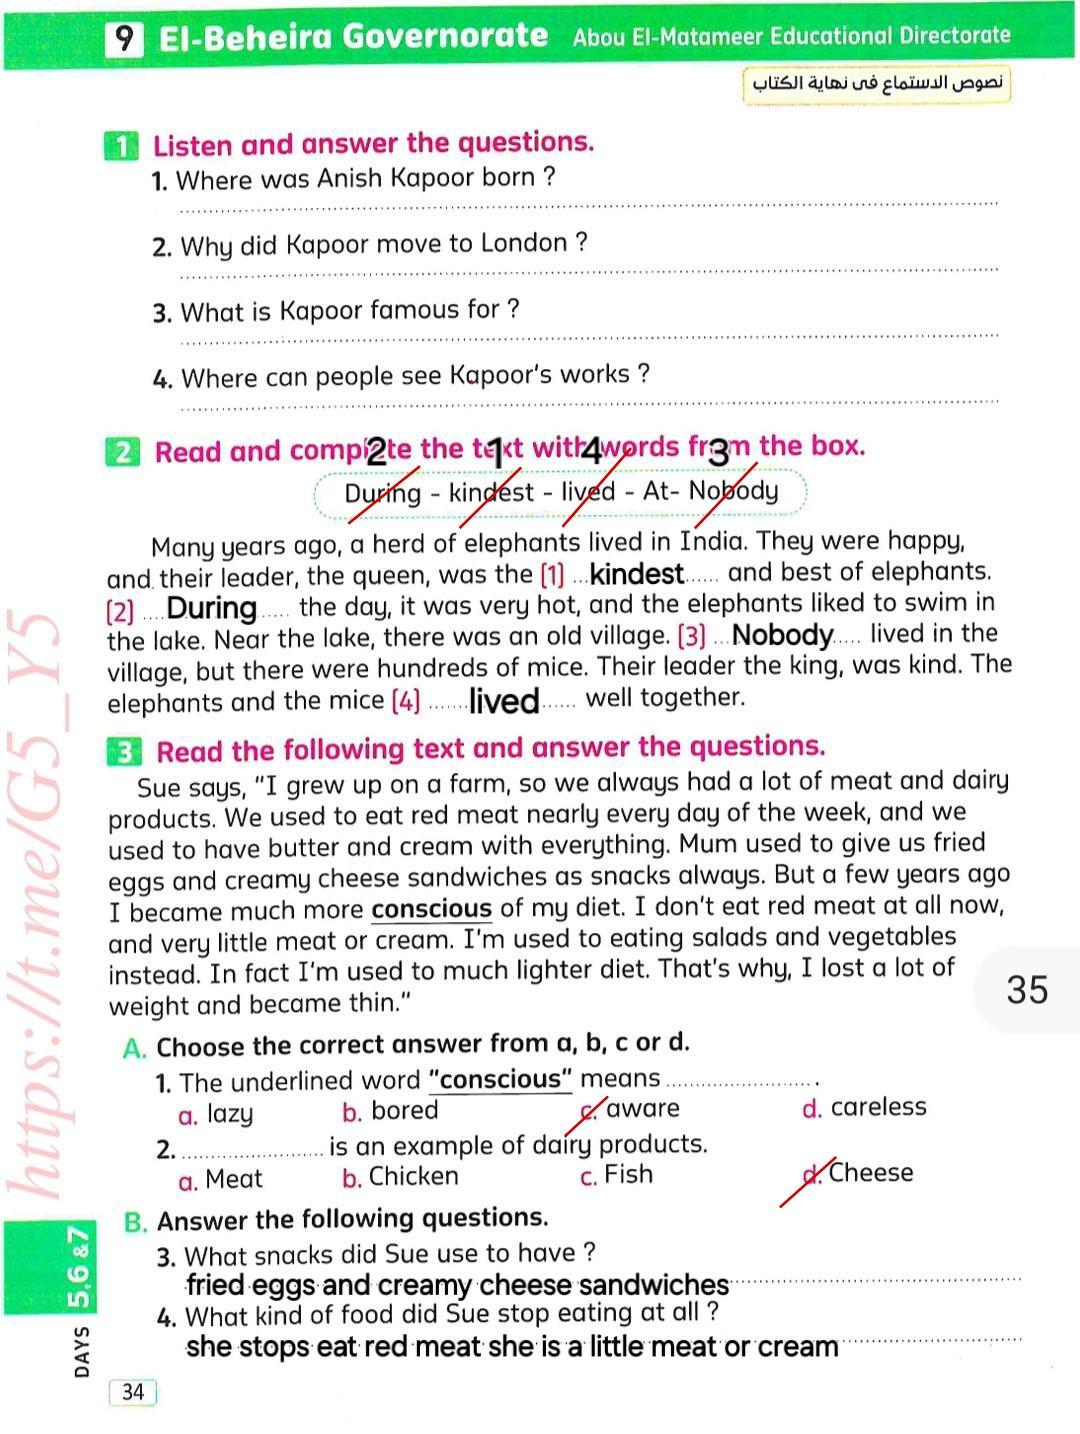 9 El-Beheira Governorate Abou El-Matameer Educational Directorate
نصوص الاستماع فى نهاية الكتاب
1 Listen and answer the questions.
1. Where was Anish Kapoor born ?
2. Why did Kapoor move to London ?
3. What is Kapoor famous for ?
4. Where can people see Kapoor's works ?
2 Read and complete the text with words from the box.
2 1 4 3
During - kindest - lived - At- Nobody
Many years ago, a herd of elephants lived in India. They were happy,
and their leader, the queen, was the (1) ...kindest...... and best of elephants.
(2) ....During..... the day, it was very hot, and the elephants liked to swim in
the lake. Near the lake, there was an old village. (3) ...Nobody..... lived in the
village, but there were hundreds of mice. Their leader the king, was kind. The
elephants and the mice (4) .......lived...... well together.
3 Read the following text and answer the questions.
Sue says, "I grew up on a farm, so we always had a lot of meat and dairy
products. We used to eat red meat nearly every day of the week, and we
used to have butter and cream with everything. Mum used to give us fried
eggs and creamy cheese sandwiches as snacks always. But a few years ago
I became much more conscious of my diet. I don't eat red meat at all now,
and very little meat or cream. I'm used to eating salads and vegetables
instead. In fact I'm used to much lighter diet. That's why, I lost a lot of
weight and became thin."
35
A. Choose the correct answer from a, b, c or d.
1. The underlined word "conscious" means ........................ .
a. lazy b. bored c. aware d. careless
2. ........................ is an example of dairy products.
a. Meat b. Chicken c. Fish d. Cheese
B. Answer the following questions.
3. What snacks did Sue use to have ?
fried eggs and creamy cheese sandwiches
4. What kind of food did Sue stop eating at all ?
she stops eat red meat she is a little meat or cream
34
DAYS 5,6 &7
https://t.me/G5_Y5